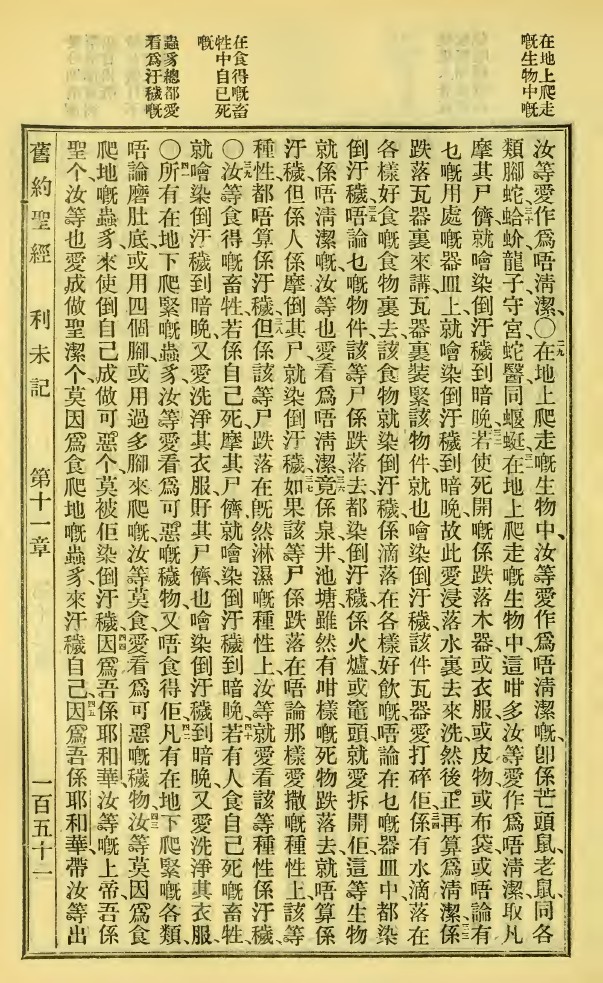 在地上爬走
嘅生物中嘅
在食得嘅畜
牲中自己死
嘅
蟲豸總都愛
看爲汙穢嘅
汝等愛作爲唔清潔○二九在地上爬走嘅生物中、汝等愛作爲唔清潔嘅、卽係芒頭鼠、老鼠、同各
類腳蛇、三十蛤蚧、龍子、守宮、蛇醫、同蝘蜓、三一在地上爬走嘅生物中、這咁多汝等愛作爲唔清潔、取凡
摩其尸儕、就噲染倒汙穢到暗晚、三二若使死開嘅係跌落木器、或衣服、或皮物、或布袋、或唔論有
乜嘅用處嘅器皿上、就噲染倒汙穢到暗晚、故此愛浸落水裏去來洗、然後正再算爲清潔、三三係
跌落瓦器裏來講、瓦器裏裝緊該物件、就也噲染倒汙穢、該件瓦器愛打碎佢、三四係有水滴落在
各樣好食嘅食物裏去、該食物就染倒汙穢、係滴落在各樣好飲嘅、唔論在乜嘅器皿中、都染
倒汙穢、三五唔論乜嘅物件、該等尸係跌落去、都染倒汙穢、係火爐、或竈頭、就愛拆開佢、這等生物
就係唔清潔嘅、汝等也愛看爲唔清潔、三六竟係泉井池塘、雖然有咁樣嘅死物跌落去、就唔算係
汙穢、但係人係摩倒其尸、就染倒汙穢、三七如果該等尸係跌落在唔論那樣愛撒嘅種性上、該等
種性都唔算係汙穢、三八但係該等尸跌落在旣然淋濕嘅種性上、汝等就愛看該等種性係汙穢、
○三九汝等食得嘅畜牲、若係自己死、摩其尸儕、就噲染倒汙穢到暗晚、四十若有人食自己死嘅畜牲、
就噲染倒汙穢到暗晚、又愛洗淨其衣服、尉其尸儕、也噲染倒汙穢到暗晚、又愛洗淨其衣服、
○四一所有在地下爬緊嘅蟲豸、汝等愛看爲可惡嘅穢物、又唔食得佢、四二凡有在地下爬緊嘅各類、
唔論磨肚底、或用四個腳、或用過多腳來爬嘅、汝等莫食、愛看爲可惡嘅穢物、四三汝等莫因爲食
爬地嘅蟲豸、來使倒自己成做可惡个、莫被佢染倒汙穢、四四因爲吾係耶和華汝等嘅上帝、吾係
聖个、汝等也愛成做聖潔个、莫因爲食爬地嘅蟲豸、來汙穢自己、四五因爲吾係耶和華、帶汝等出
舊約聖經 利未記 第十一章 一百五十一